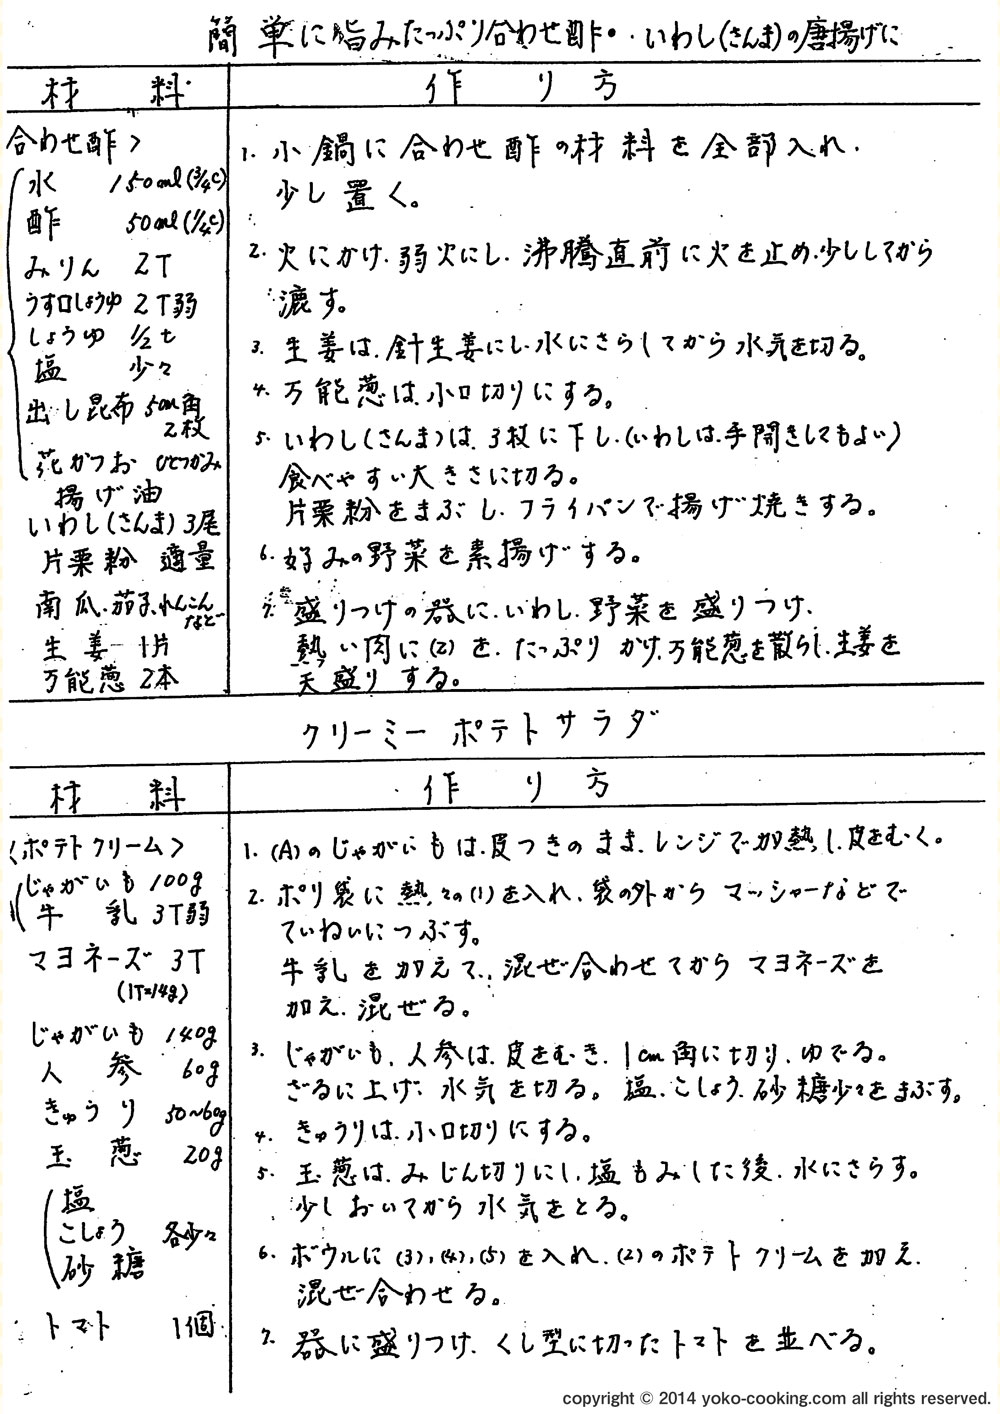 簡単に旨みたっぷり合わせ酢・・いわし(さんま)の唐揚げに
材 料
作 り 方
合わせ酢>
水 150ml(3/4c)
酢 50ml(1/4c)
みりん 2T
うす口しょうゆ 2T弱
しょうゆ 1/2t
塩 少々
出し昆布 5cm角
2枚
花かつお ひとつかみ
揚げ油
いわし(さんま)3尾
片栗粉 適量
南瓜、茄子、れんこん
など
生姜 1片
万能葱 2本
1. 小鍋に合わせ酢の材料を全部入れ、
少し置く。
2. 火にかけ、弱火にし、沸騰直前に火を止め、少ししてから
漉す。
3. 生姜は、針生姜にし、水にさらしてから水気を切る。
4. 万能葱は、小口切りにする。
5. いわし(さんま)は、3枚に下し、(いわしは、手開きしてもよい)
食べやすい大きさに切る。
片栗粉をまぶし、フライパンで揚げ焼きする。
6. 好みの野菜を素揚げする。
7. 盛りつけの器に、いわし、野菜を盛りつけ、
熱い肉に(2)を、たっぷりかけ、万能葱を散らし、生姜を
天盛りする。
クリーミーポテトサラダ
材 料
作 り 方
<ポテトクリーム>
じゃがいも 100g
牛 乳 3T弱
マヨネーズ 3T
(1T=14g)
じゃがいも 140g
人 参 60g
きゅうり 50~60g
玉 葱 20g
塩
こしょう 各少々
砂糖
トマト 1個
1. (A)のじゃがいもは、皮つきのまま、レンジで加熱し、皮をむく。
2. ポリ袋に熱々の(1)を入れ、袋の外からマッシャーなどで
ていねいにつぶす。
牛乳を加えて、混ぜ合わせてからマヨネーズを
加え、混ぜる。
3. じゃがいも、人参は、皮をむき、1cm角に切り、ゆでる。
ざるに上げ、水気を切る。塩、こしょう、砂糖少々をまぶす。
4. きゅうりは、小口切りにする。
5. 玉葱は、みじん切りにし、塩もみした後、水にさらす。
少しおいてから水気をとる。
6. ボウルに(3)、(4)、(5)を入れ、(2)のポテトクリームを加え、
混ぜ合わせる。
7. 器に盛りつけ、くし型に切ったトマトを並べる。
copyright © 2014 yoko-cooking.com all rights reserved.